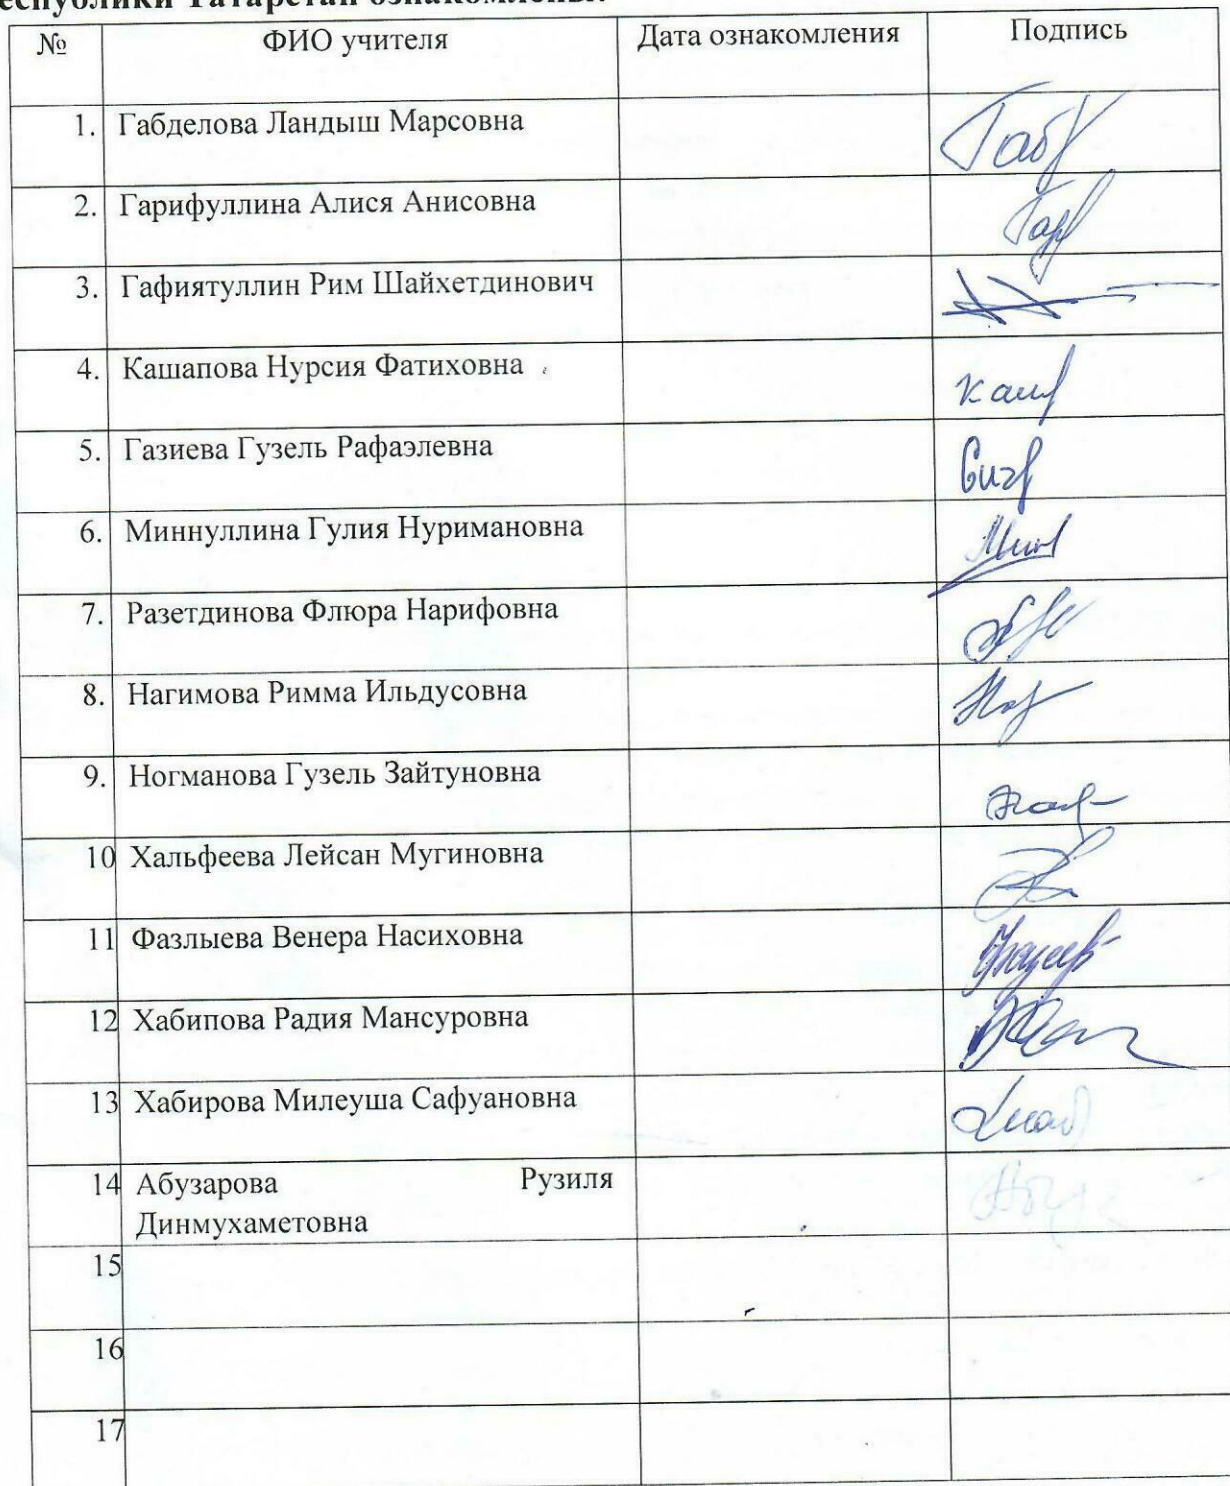 Республики Татарстан ознакомлены:
№ ФИО учителя Дата ознакомления Подпись
1. Габделова Ландыш Марсовна Габ
2. Гарифуллина Алися Анисовна Гар
3. Гафиятуллин Рим Шайхетдинович
4. Кашапова Нурсия Фатиховна Каш
5. Газиева Гузель Рафаэлевна
6. Миннуллина Гулия Нуримановна Мин
7. Разетдинова Флюра Нарифовна
8. Нагимова Римма Ильдусовна Наг
9. Ногманова Гузель Зайтуновна
10 Хальфеева Лейсан Мугиновна
11 Фазлыева Венера Насиховна
12 Хабипова Радия Мансуровна
13 Хабирова Милеуша Сафуановна
14 Абузарова Рузиля
Динмухаметовна
15
16
17